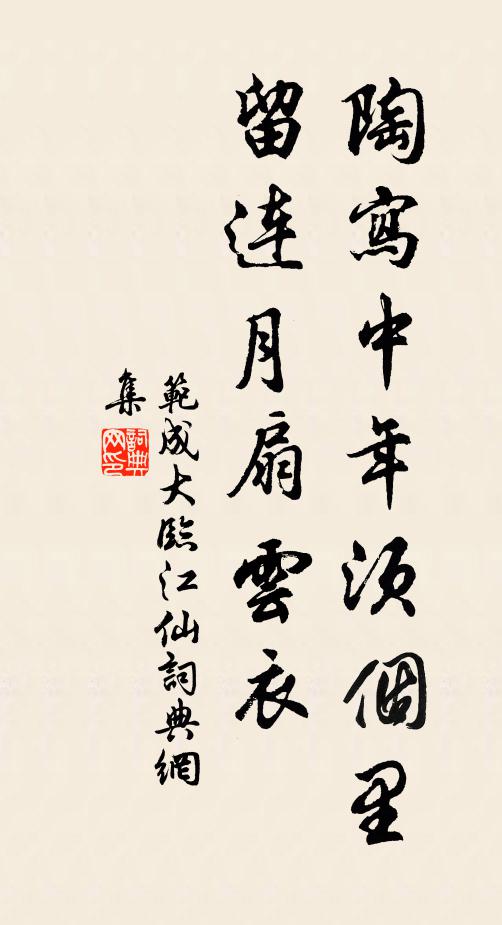 陶寫中年須個里
留連月扇雲衣
範成大臨江仙詞典網
集
詞典網印